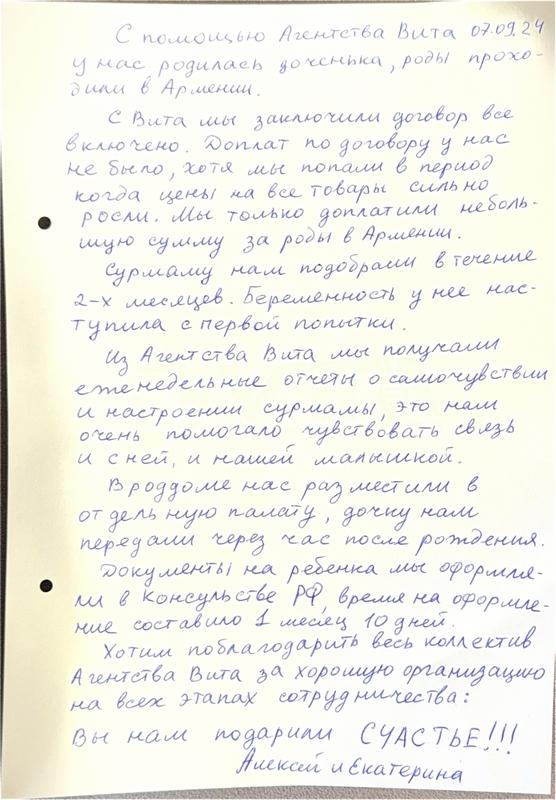 С помощью Агентства Вита 07.09.24
у нас родилась доченька, роды прохо-
дили в Армении.
С Вита мы заключили договор все
включено. Доплат по договору у нас
не было, хотя мы попали в период
когда цены на все товары сильно
росли. Мы только доплатили неболь-
шую сумму за роды в Армении.
Сурмаму нам подобрали в течение
2-х месяцев. Беременность у нее нас-
тупила с первой попытки.
Из Агентства Вита мы получали
еженедельные отчеты о самочувствии
и настроении сурмамы, это нам
очень помогало чувствовать связь
и с ней, и нашей малышкой.
В роддоме нас разместили в
отдельную палату, дочку нам
передали через час после рождения.
Документы на ребенка мы оформля-
ли в Консульстве РФ, время на оформле-
ние составило 1 месяц 10 дней.
Хотим поблагодарить весь коллектив
Агентства Вита за хорошую организацию
на всех этапах сотрудничества:
Вы нам подарили СЧАСТЬЕ!!!
Алексей и Екатерина